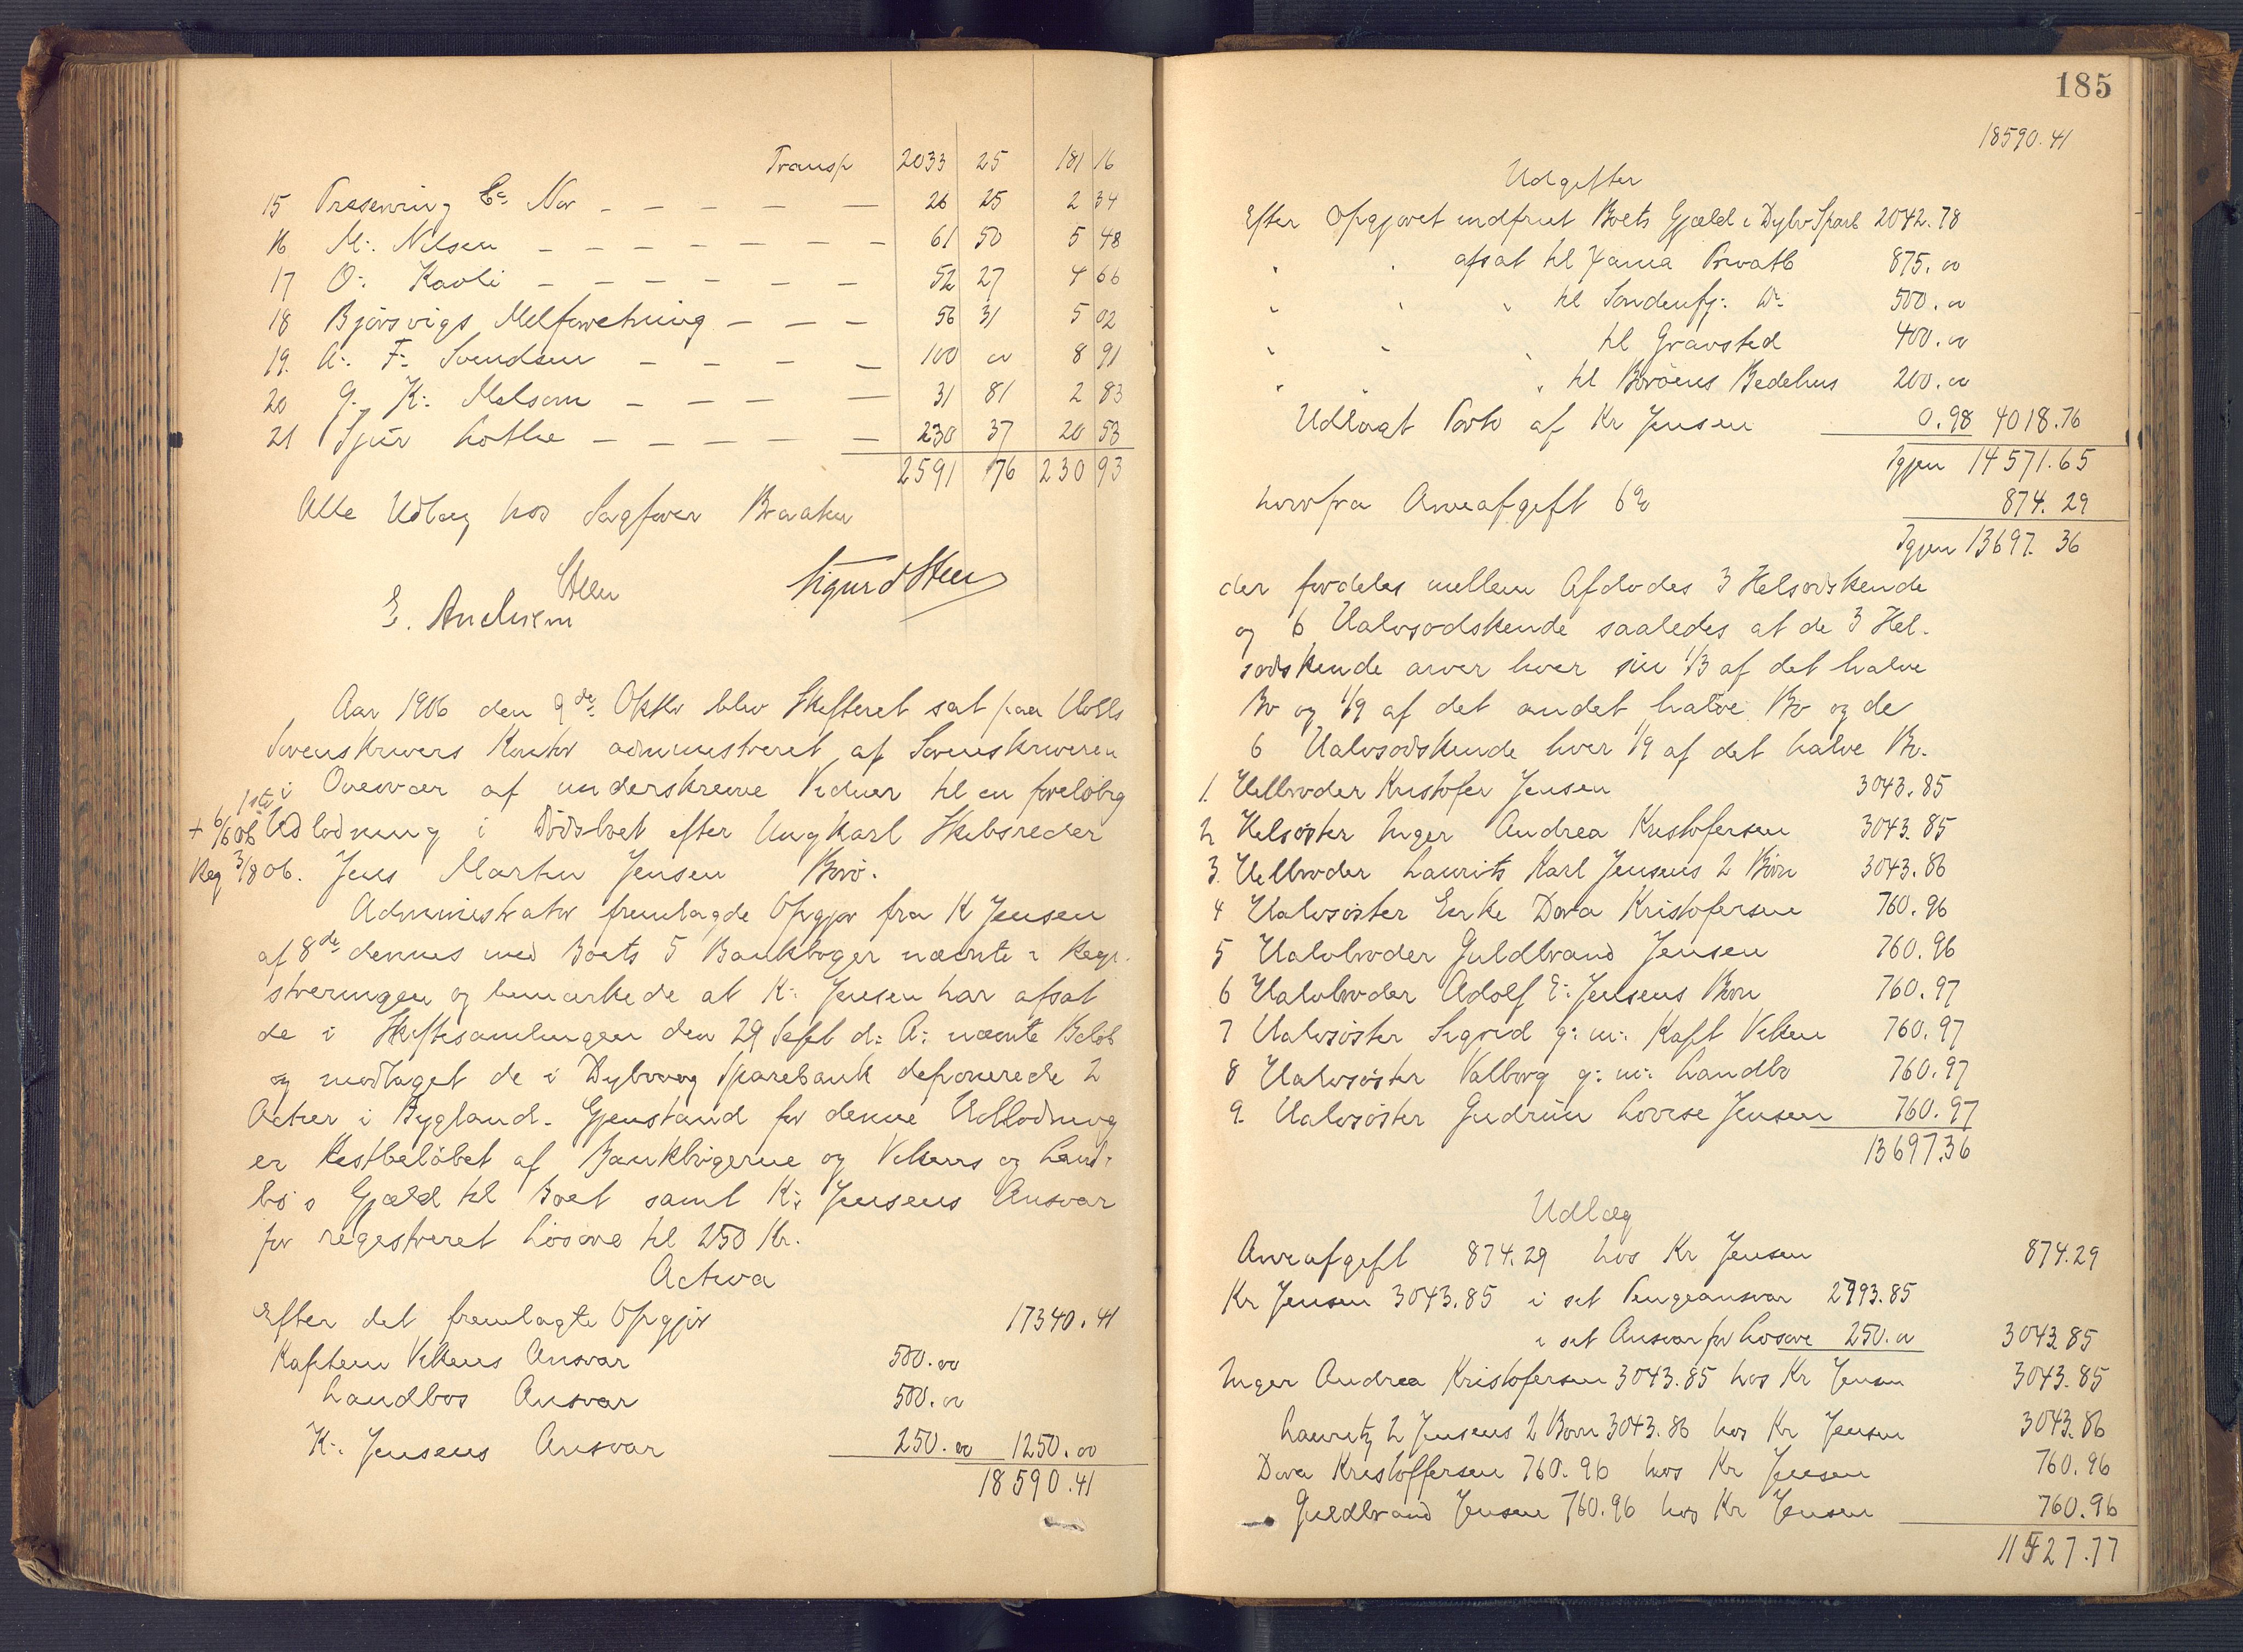 Transp 2033 25 181 16
15 Presenning Co Nor — — — — — 26 25 2 34
16 M. Nilsen — — — — — — — 61 50 5 48
17 O. Kavli — — — — — — 52 27 4 66
18 Bjørsvigs Melforretning — — — 56 31 5 02
19. A. F. Svendsen — — — — 100 00 8 91
20 G. K. Melsom — — — — 31 81 2 83
21 Lothe — — — — — 230 37 20 53
2591 76 230 93
Alle Udlæg hos Sagfører Braaten
Steen Sigurd Steen
E. Andersen
Aar 1906 den 9de Oktbr blev Skifteret sat paa Holts
Sorenskrivers Kontor administreret af Sorenskriveren
i Overvær af underskrevne Vidner til en foreløbig
1ste
+ 6/6 06 Udlodning i Dødsboet efter Ungkarl Skibsreder
Reg 3/8 06. Jens Martin Jensen Borø.
Administrator fremlagde Opgjør fra K Jensen
af 8de dennes med Boets 5 Bankbøger nævnte i Regi-
streringen og bemærkede at K. Jensen har afsat
de i Skiftesamlingen den 29 Sept d. A. nævnte Beløb
og modtaget de i Dybvaag Sparebank deponerede 2
Actier i Bygland. Gjenstand for denne Udlodning
er Restbeløbet af Bankbøgerne og Vikens og Land-
bø's Gjæld til Boet samt K. Jensens Ansvar
for registreret Løsøre til 250 Kr.
Activa
Efter det fremlagte Opgjør 17340.41
Kaptein Vikens Ansvar 500.00
Landbøs Ansvar 500.00
K. Jensens Ansvar 250.00 1250.00
18590.41
185
18590.41
Udgifter
Efter Opgjøret indfriet Boets Gjæld i Dybv Sparb 2042.78
" " afsat til Privatb 875.00
" " " til Søndenfj. Do 500.00
" " " til Gravsted 400.00
" " " til Borøens Bedehus 200.00
Udlagt Porto af Kr Jensen 0.98 4018.76
Igjen 14571.65
herfra Arveafgift 6% 874.29
Igjen 13697.36
der fordeles mellem Afdødes 3 Helsødskende
og 6 Halvsødskende saaledes at de 3 Hel-
sødskende arver hver sin 1/3 af det halve
Bo og 1/9 af det andet halve Bo og de
6 Halvsødskende hver 1/9 af det halve Bo.
1. Helbroder Kristofer Jensen 3043.85
2 Helsøster Inger Andrea Kristofersen 3043.85
3. Helbroder Laurits Karl Jensens 2 Børn 3043.86
4 Halvsøster Dora Kristofersen 760.96
5 Halvbroder Guldbrand Jensen 760.96
6 Halvbroder Adolf E. Jensens Børn 760.97
7 Halvsøster Sigrid g. m. Kapt Viken 760.97
8 Halvsøster Valborg g. m. Landbø 760.97
9. Halvsøster Gudrun Lovise Jensen 760.97
13697.36
Udlæg
Arveafgift 874.29 hos Kr Jensen 874.29
Kr Jensen 3043.85 i sit Pengeansvar 2793.85
i sit Ansvar for Løsøre 250.00 3043.85
Inger Andrea Kristofersen 3043.85 hos Kr Jensen 3043.85
Lauritz Jensens 2 Børn 3043.86 hos Kr Jensen 3043.86
Dora Kristoffersen 760.96 hos Kr Jensen 760.96
Guldbrand Jensen 760.96 hos Kr Jensen 760.96
11527.77